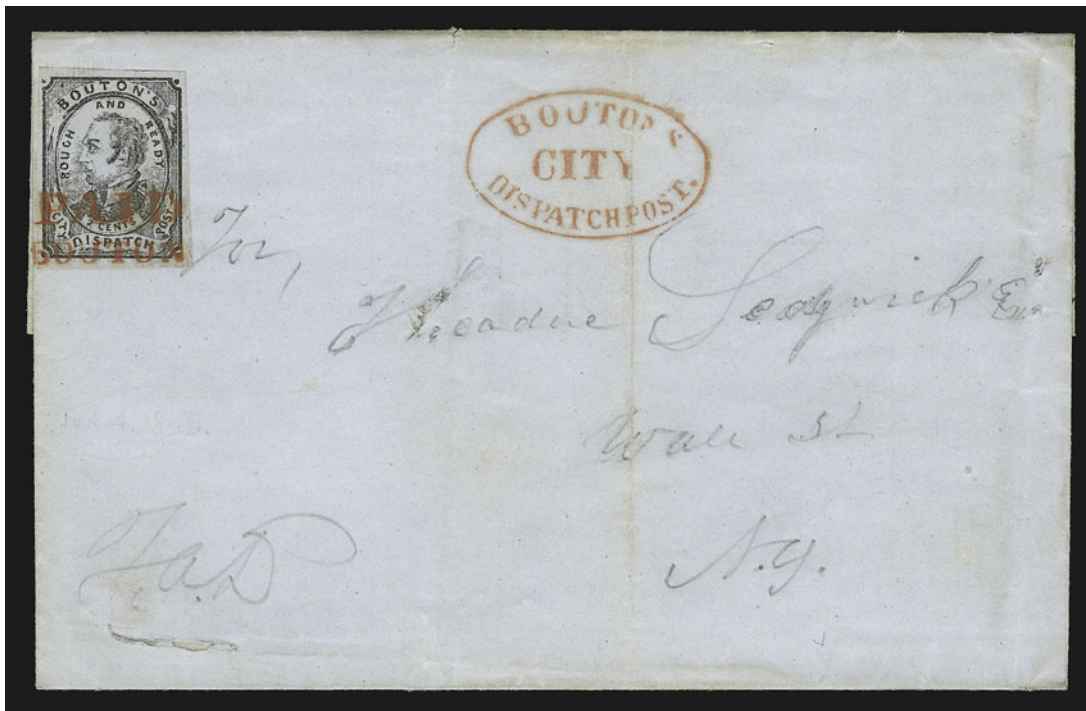 BOUTON'S
AND
ROUGH READY
2 CENTS
CITY DISPATCH POST
PAID
BOUTON
BOUTON'S
CITY
DISPATCH POST.
For,
Theadore Sedgwick Esq
Wall St
N.Y.